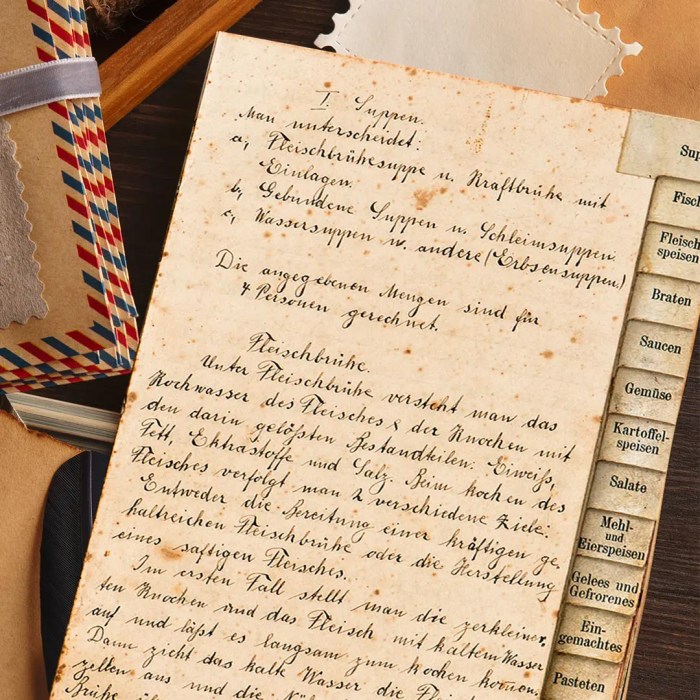 I Suppen.
Man unterscheidet:
a, Fleischbrühesuppe u. Kraftbrühe mit
Einlagen.
b, Gebundene Suppen u. Schleimsuppen.
c, Wassersuppen u. andere (Erbsensuppen)
Die angegebenen Mengen sind für
4 Personen gerechnet.
Fleischbrühe.
Unter Fleischbrühe versteht man das
Kochwasser des Fleisches & der Knochen mit
den darin gelößten Bestandteilen: Eiweiß,
Fett, Ektrastoffe und Salz. Beim kochen des
Fleisches verfolgt man 2 verschiedene Ziele:
Entweder die Bereitung einer kräftigen ge,
haltreichen Fleischbrühe oder die Herstellung
eines saftigen Fleisches.
Im ersten Fall stellt man die zerkleiner,
ten Knochen und das Fleisch mit kaltem Wasser
auf und läßt es langsam zum kochen kommen.
Dann zieht das kalte Wasser die
zellen aus und die
Brühe
Sup
Fisch
Fleisch
speisen
Braten
Saucen
Gemüse
Kartoffel-
speisen
Salate
Mehl-
und
Eierspeisen
Gelees und
Gefrorenes
Ein-
gemachtes
Pasteten